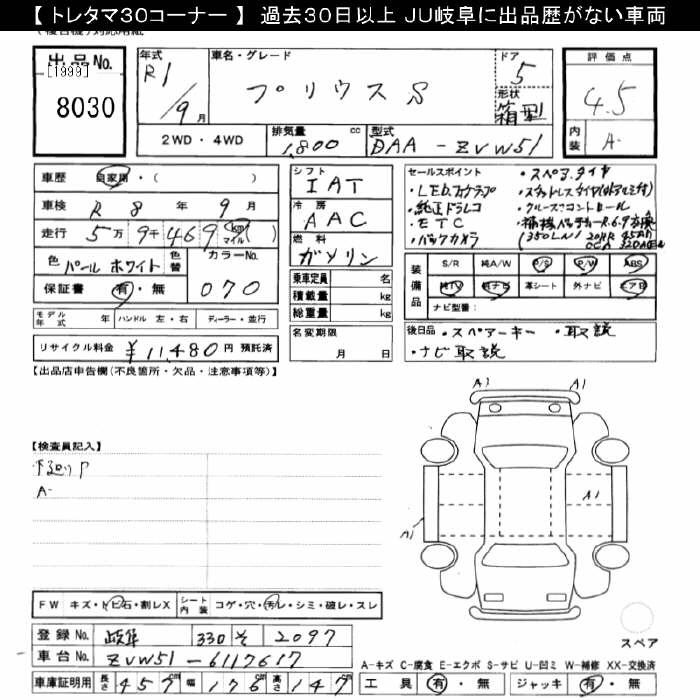 【 トレタマ30コーナー 】 過去30日以上 JU岐阜に出品歴がない車両
出品 No.
[1999]
8030
年式
R1
9月
車名・グレード
プリウス S
ドア
5
形状
箱型
評価点
4.5
内装
A-
2WD・4WD
排気量
1,800 cc
型式
DAA-ZVW51
車歴 自家用・( )
車検 R 8 年 9 月
走行 5万 9千 469 (km マイル)
色 パールホワイト
色替
カラーNo.
070
保証書 有・無
モデル年式 年 ハンドル 左・右 ディーラー・並行
リサイクル料金 ¥11,480 円 預託済
シフト
IAT
冷房
AAC
燃料
ガソリン
乗車定員 名
積載量 kg
総重量 kg
名変期限
月 日
セールスポイント
・LEDフォグランプ
・純正ドラレコ
・ETC
・バックカメラ
・スペアタイヤ
・スタッドレスタイヤ(アルミ付)
・クルーズコントロール
・補機バッテリーR6.9交換
装備品
S/R 純A/W P/S P/W ABS
純TV 純ナビ 革シート 外ナビ エアB
ナビ型番:
後日品 ・スペアーキー ・取説
・ナビ取説
【出品店申告欄(不良箇所・欠品・注意事項等)】
【検査員記入】
下廻りP
A-
A1
A1
A1
A1
FW キズ・トビ石・割レX
シート内装 コゲ・穴・汚レ・シミ・破レ・スレ
登録 No. 岐阜 330 そ 2097
車台 No. ZVW51-6117617
車庫証明用 長さ 457 幅 176 高さ 147
スペア
A-キズ C-腐食 E-エクボ S-サビ U-凹ミ W-補修 XX-交換済
工具 有・無 ジャッキ 有・無